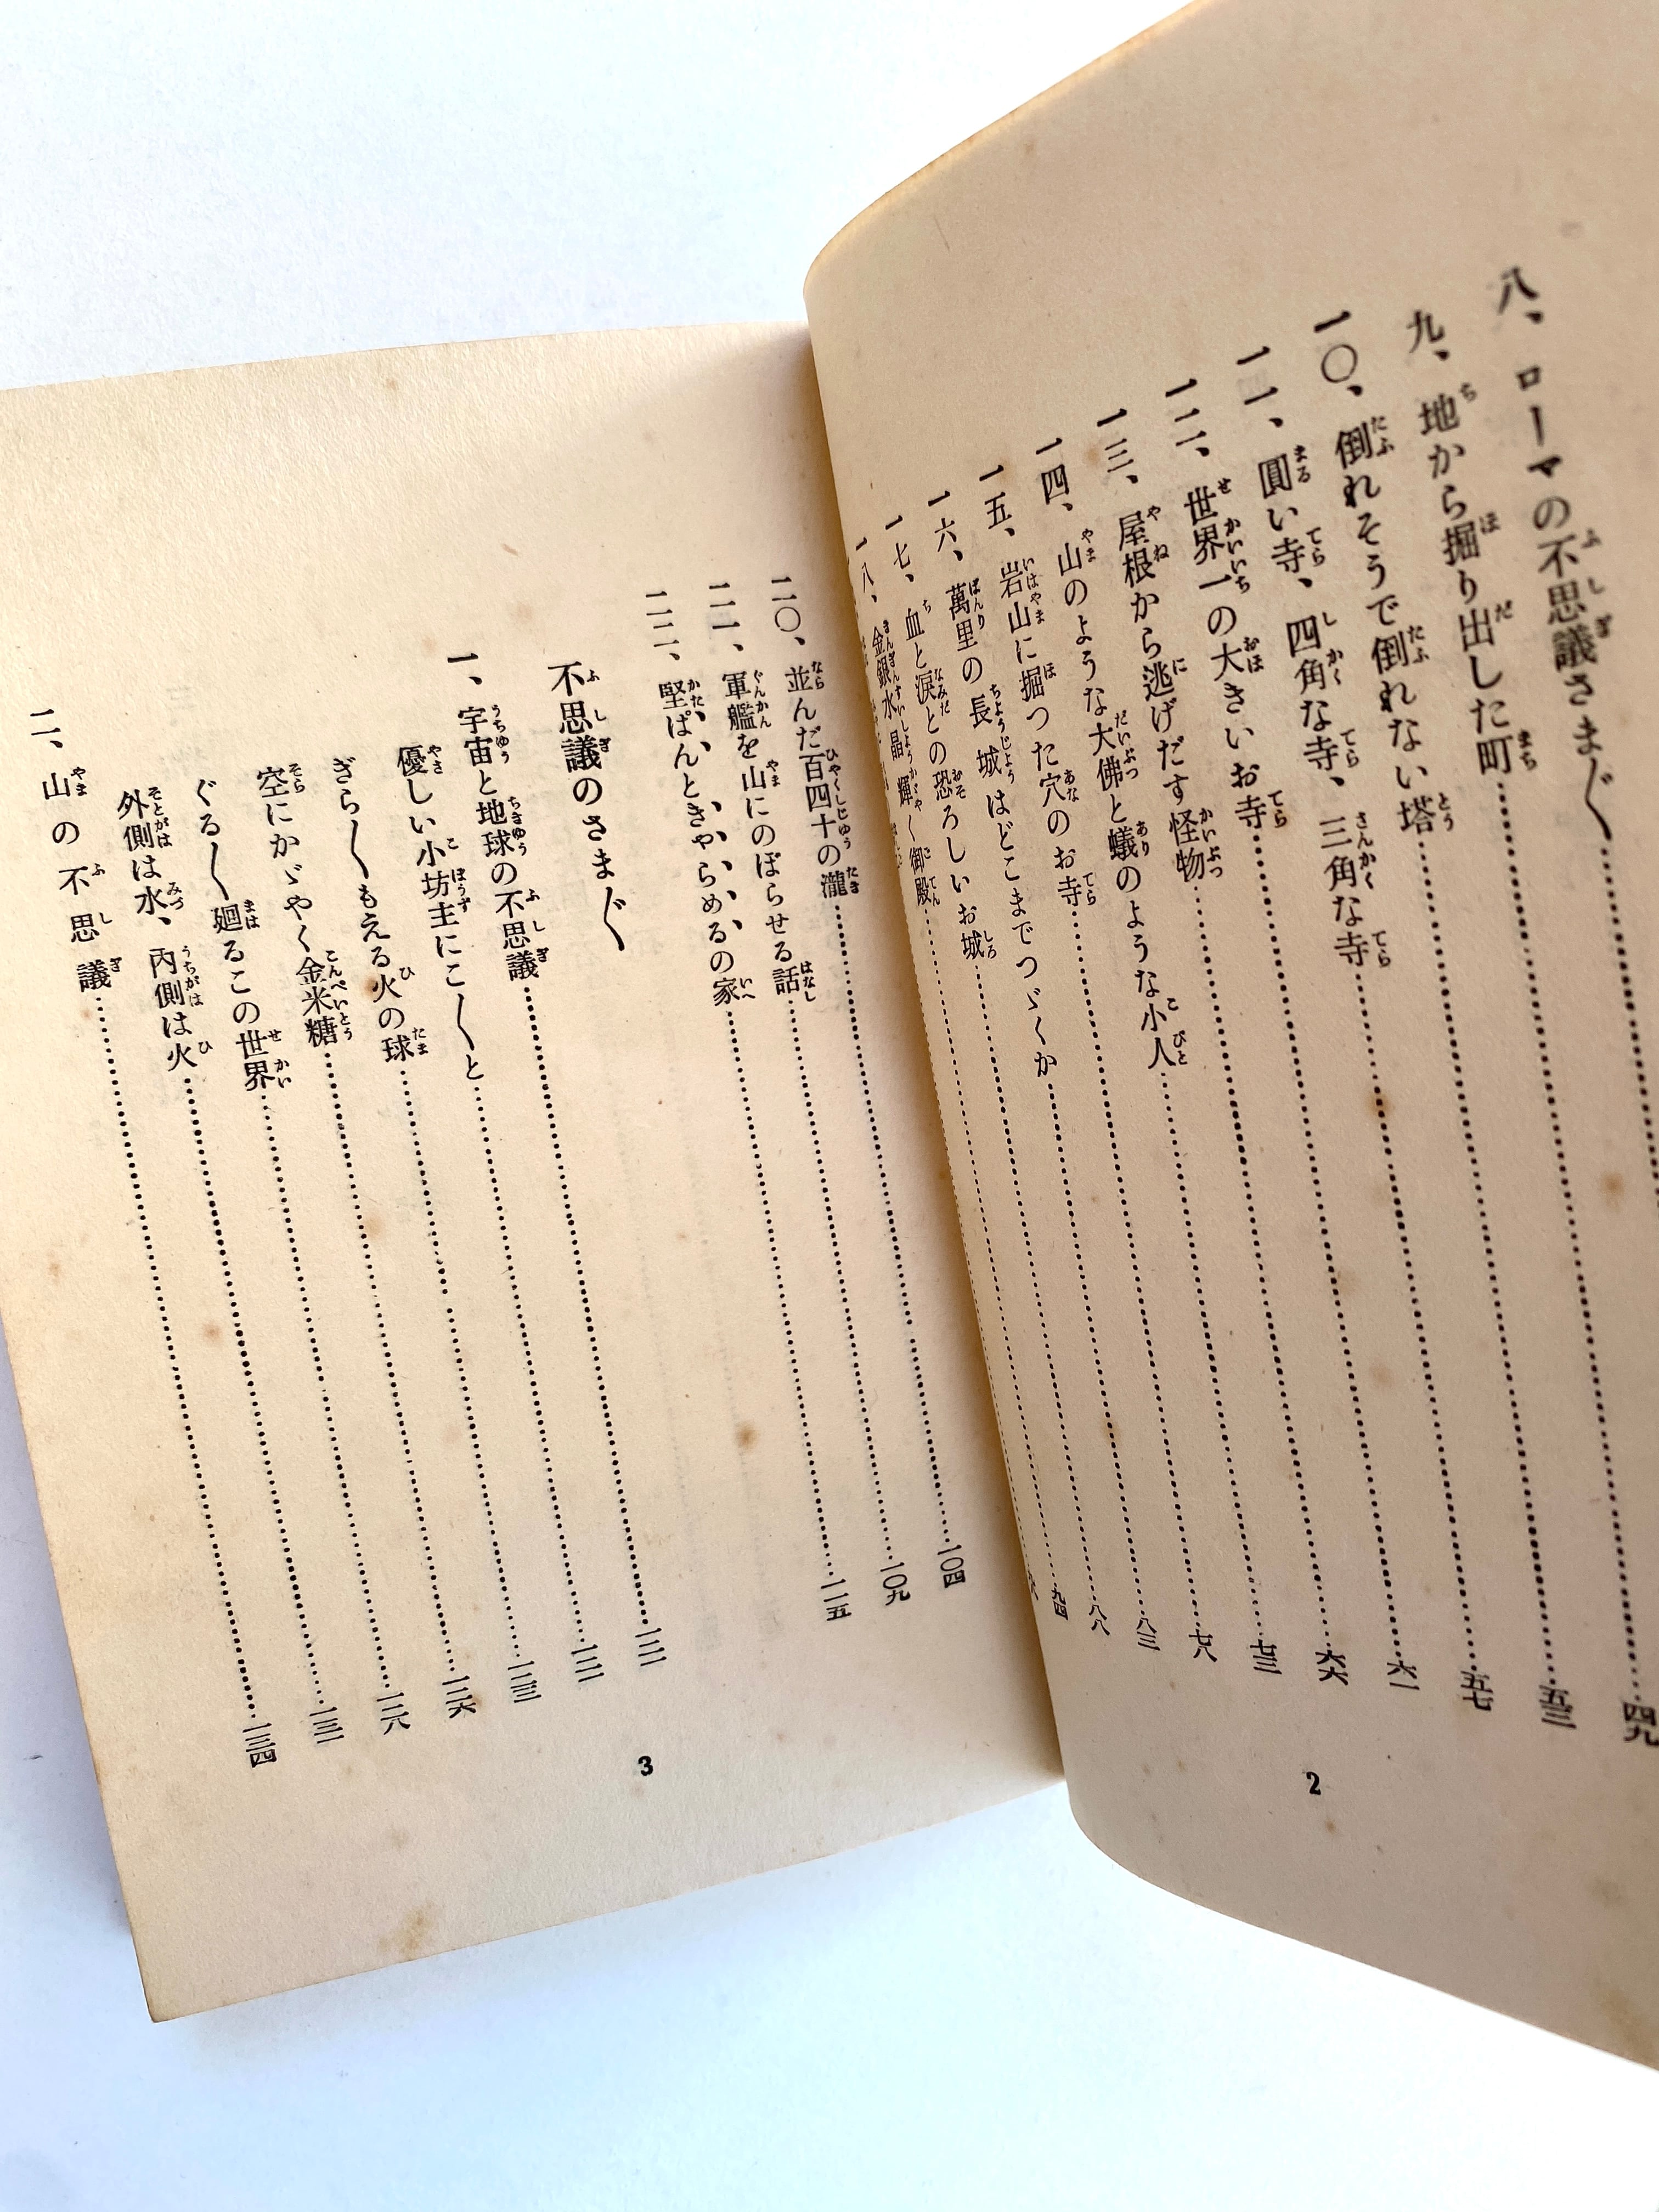 八、ローマの不思議さま〴〵……四九
九、地から掘り出した町……五三
一〇、倒れそうで倒れない塔……五七
一一、圓い寺、四角な寺、三角な寺……六一
一二、世界一の大きいお寺……六六
一三、屋根から逃げだす怪物……七三
一四、山のような大佛と蟻のような小人……七八
一五、岩山に掘つた穴のお寺……八三
一六、萬里の長城はどこまでつゞくか……八八
一七、血と涙との恐ろしいお城……九四
一八、金銀水晶輝く御殿……
2
二〇、並んだ百四十の瀧……一〇四
二一、軍艦を山にのぼらせる話……一〇九
二二、堅ぱんときやらめるの家……一一五
不思議のさま〴〵……一二一
一、宇宙と地球の不思議……一二一
優しい小坊主にこ〳〵と……一二三
ぎら〳〵もえる火の球……一二六
空にかゞやく金米糖……一二八
ぐる〳〵廻るこの世界……一三一
外側は水、内側は火……一三四
二、山の不思議……
3